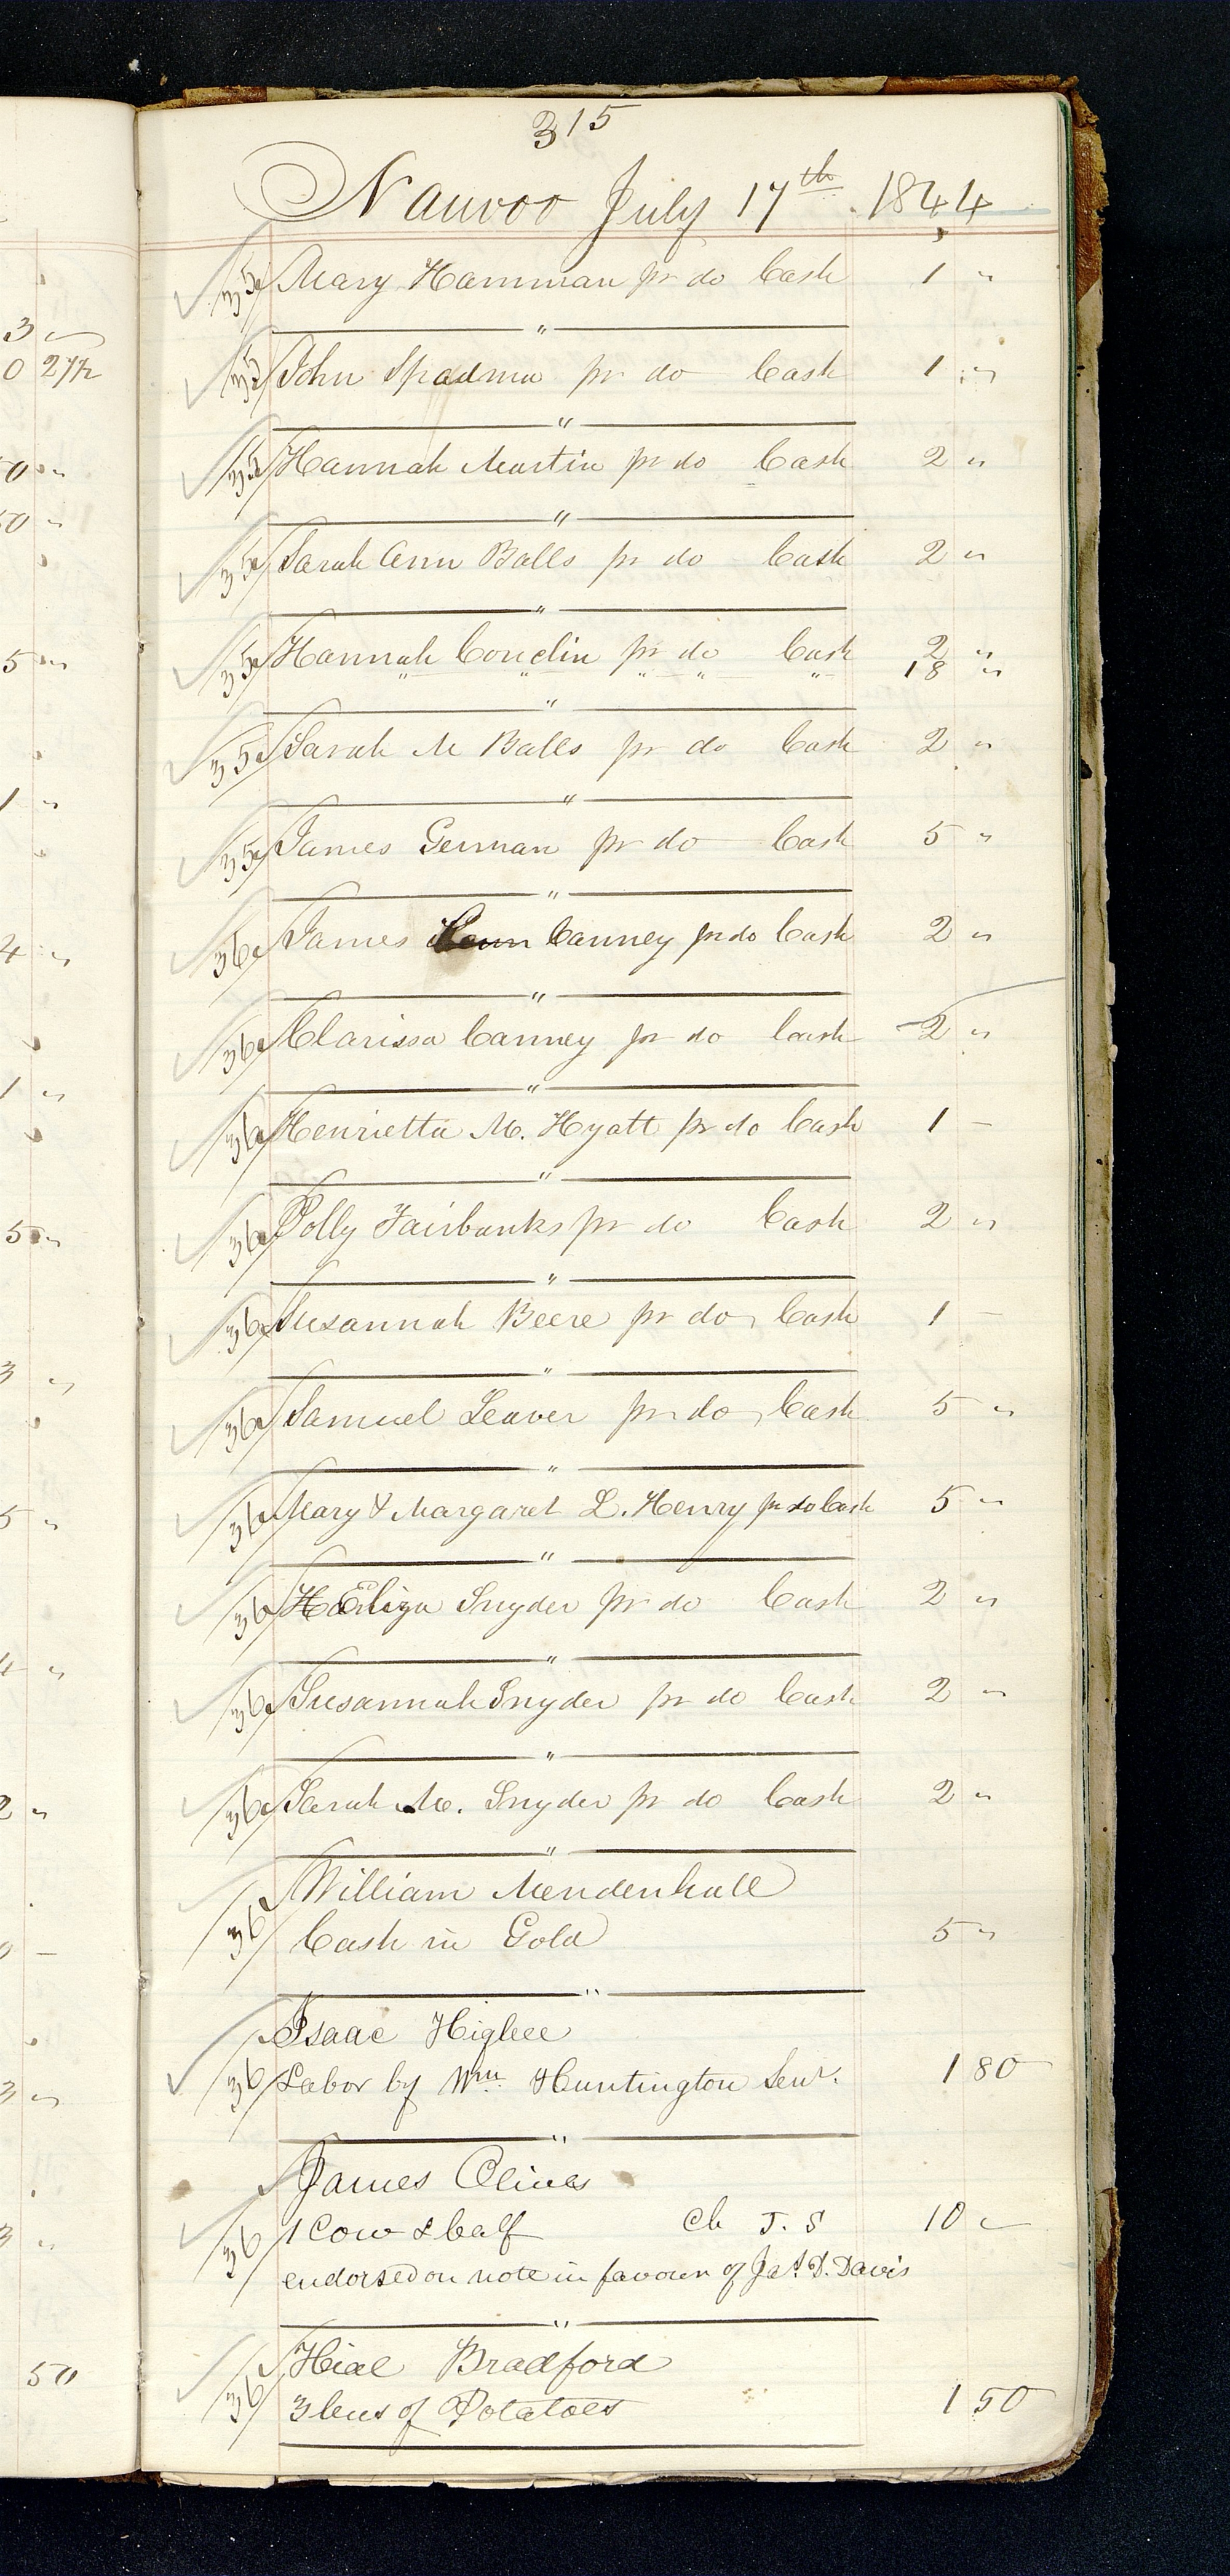 315
Nauvoo July 17th 1844
35 Mary Hamman pr do Cash 1 "
"
35 John Spadma pr do Cash 1 "
"
35 Hannah Martin pr do Cash 2 "
"
35 Sarah Ann Balls pr do Cash 2 "
"
35 Hannah Conclin pr do Cash 2 "
" " " " " 18 "
"
35 Sarah M Balls pr do Cash 2 "
"
35 James German pr do Cash 5 "
"
36 James Canney pr do Cash 2 "
"
36 Clarissa Canney pr do Cash 2 "
"
36 Henrietta M. Hyatt pr do Cash 1 –
"
36 Polly Fairbanks pr do Cash 2 "
"
36 Susannah Beere pr do, Cash 1 –
"
36 Samuel Leaver pr do, Cash 5 "
"
36 Mary & Margaret L. Henry pr do Cash 5 "
"
36 Eliza Snyder pr do Cash 2 "
"
36 Susannah Snyder pr do Cash 2 "
"
36 Sarah M. Snyder pr do Cash 2 "
"
William Mendenhall
36 Cash in Gold 5 "
"
Isaac Higbee
36 Labor by Wm. Huntington Senr. 1 80
"
James Olives
36 1 Cow & Calf Ch J. S 10 "
endorsed on note in favour of Jas. D. Davis
"
Hial Bradford
36 3 bus of Potatoes 1 50
3 "
0 27½
0 "
50 "
5 "
1 "
4 "
1 "
5 "
3 "
5 "
4 "
2 "
3 "
3 "
50